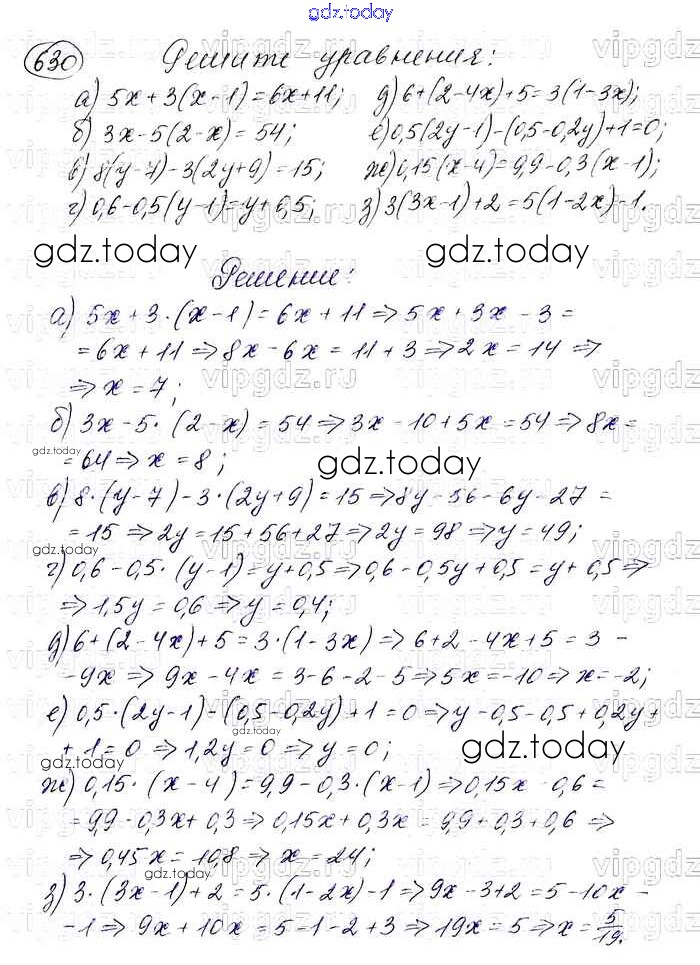 gdz.today
630 Решите уравнения:
а) 5x+3(x-1)=6x+11; д) 6+(2-4x)+5=3(1-3x);
б) 3x-5(2-x)=54; е) 0,5(2y-1)-(0,5-0,2y)+1=0;
в) 8(y-7)-3(2y+9)=15; ж) 0,15(x-4)=9,9-0,3(x-1);
г) 0,6-0,5(y-1)=y+0,5; з) 3(3x-1)+2=5(1-2x)-1.
gdz.today gdz.today
Решение:
а) 5x+3·(x-1)=6x+11⇒5x+3x-3=
=6x+11⇒8x-6x=11+3⇒2x=14⇒
⇒x=7;
б) 3x-5·(2-x)=54⇒3x-10+5x=54⇒8x=
gdz.today
=64⇒x=8;
gdz.today
в) 8·(y-7)-3·(2y+9)=15⇒8y-56-6y-27=
=15⇒2y=15+56+27⇒2y=98⇒y=49;
gdz.today
г) 0,6-0,5·(y-1)=y+0,5⇒0,6-0,5y+0,5=y+0,5⇒
⇒1,5y=0,6⇒y=0,4;
gdz.today
д) 6+(2-4x)+5=3·(1-3x)⇒6+2-4x+5=3-
-9x⇒9x-4x=3-6-2-5⇒5x=-10⇒x=-2;
е) 0,5·(2y-1)-(0,5-0,2y)+1=0⇒y-0,5-0,5+0,2y+
+1=0⇒1,2y=0⇒y=0;
gdz.today gdz.today
ж) 0,15·(x-4)=9,9-0,3·(x-1)⇒0,15x-0,6=
=9,9-0,3x+0,3⇒0,15x+0,3x=9,9+0,3+0,6⇒
⇒0,45x=10,8⇒x=24;
gdz.today
з) 3·(3x-1)+2=5·(1-2x)-1⇒9x-3+2=5-10x-
-1⇒9x+10x=5-1-2+3⇒19x=5⇒x=5/19.
gdz.today